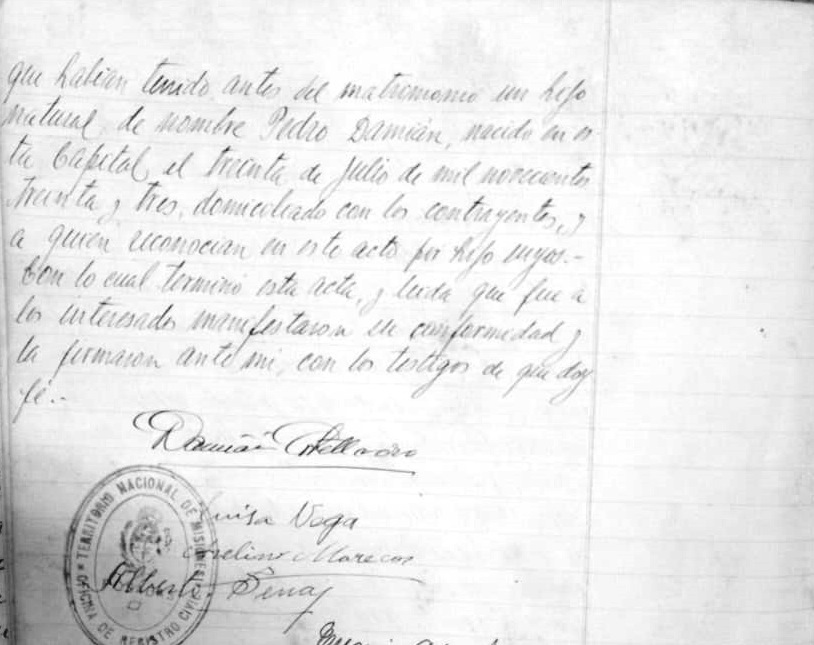 que habian tenido antes del matrimonio un hijo
natural, de nombre Pedro Damián, nacido en es
ta Capital, el treinta de Julio de mil novecientos
treinta y tres, domiciliado con los contrayentes, y
a quien reconocian en este acto por hijo suyos.-
Con lo cual terminó esta acta, y leida que fue a
los interesados manifestaron su conformedad y
la firmaron ante mi, con los testigos de que doy
fé.-
Damián
Luisa Vega
Marecos
Alberto
TERRITORIO NACIONAL DE MISIONES
OFICINA DE REGISTRO CIVIL